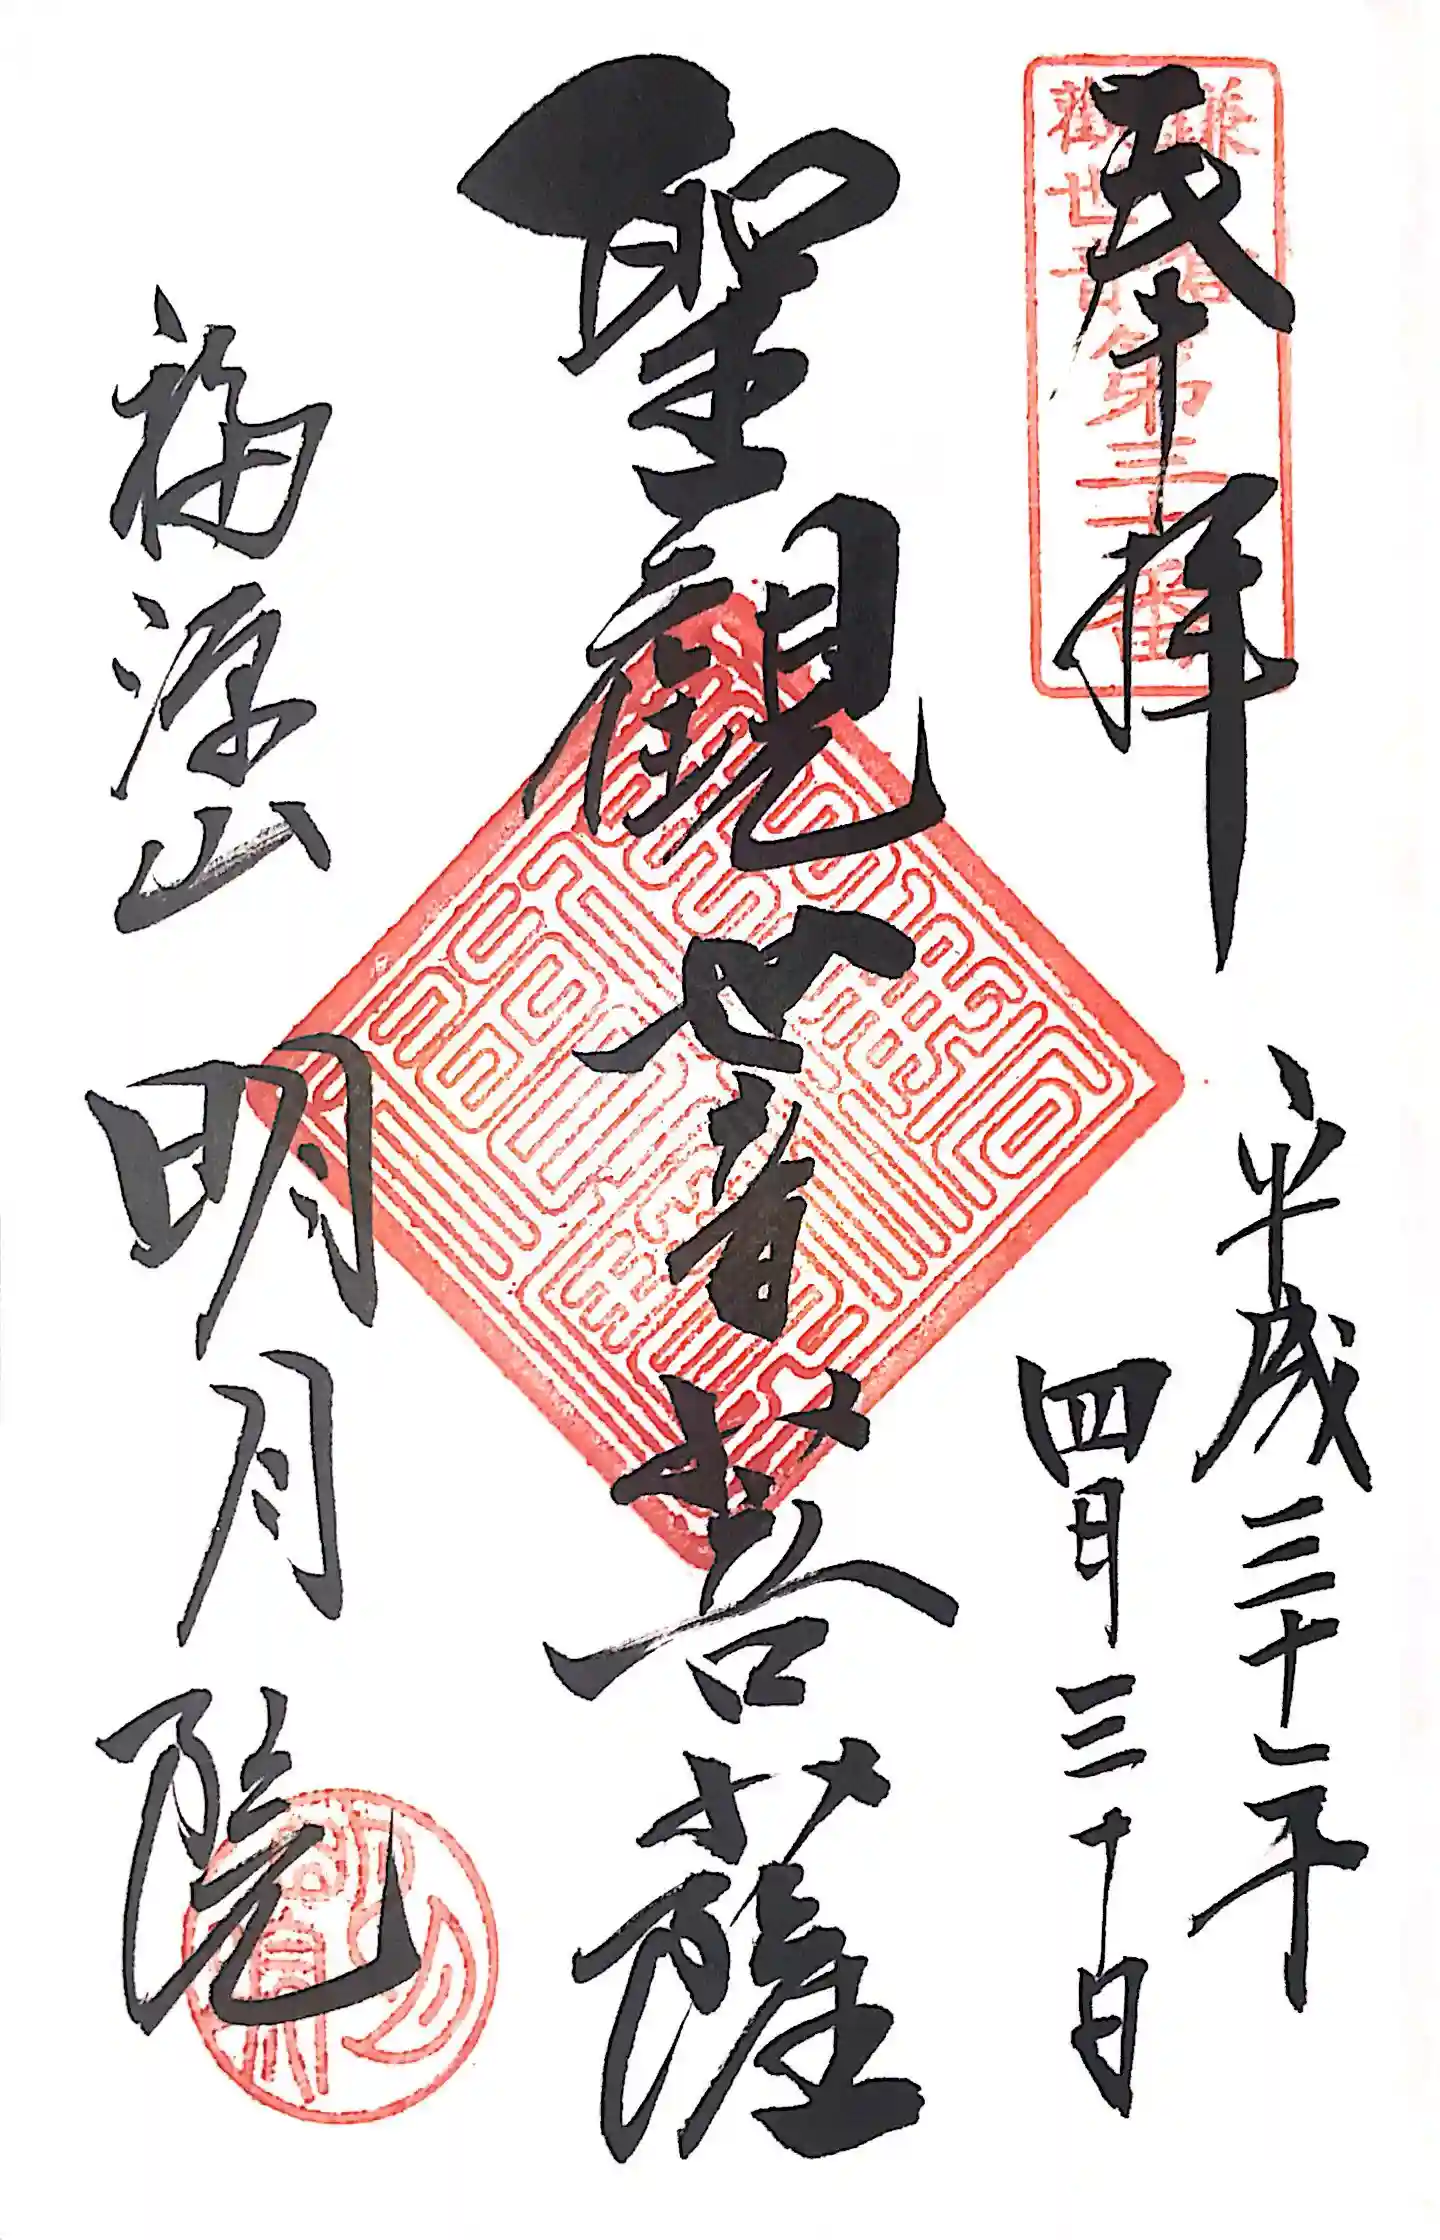 奉拝
鎌倉
觀世音
第三十番
平成三十一年
四月三十日
聖觀世音菩薩
福源山
明月院